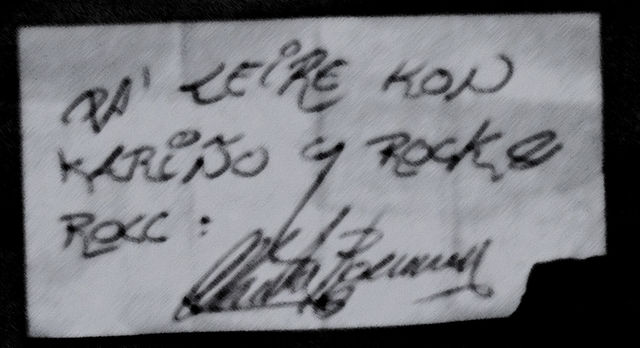 PA' LEIRE KON
KARIÑO Y ROCK &
ROLL: